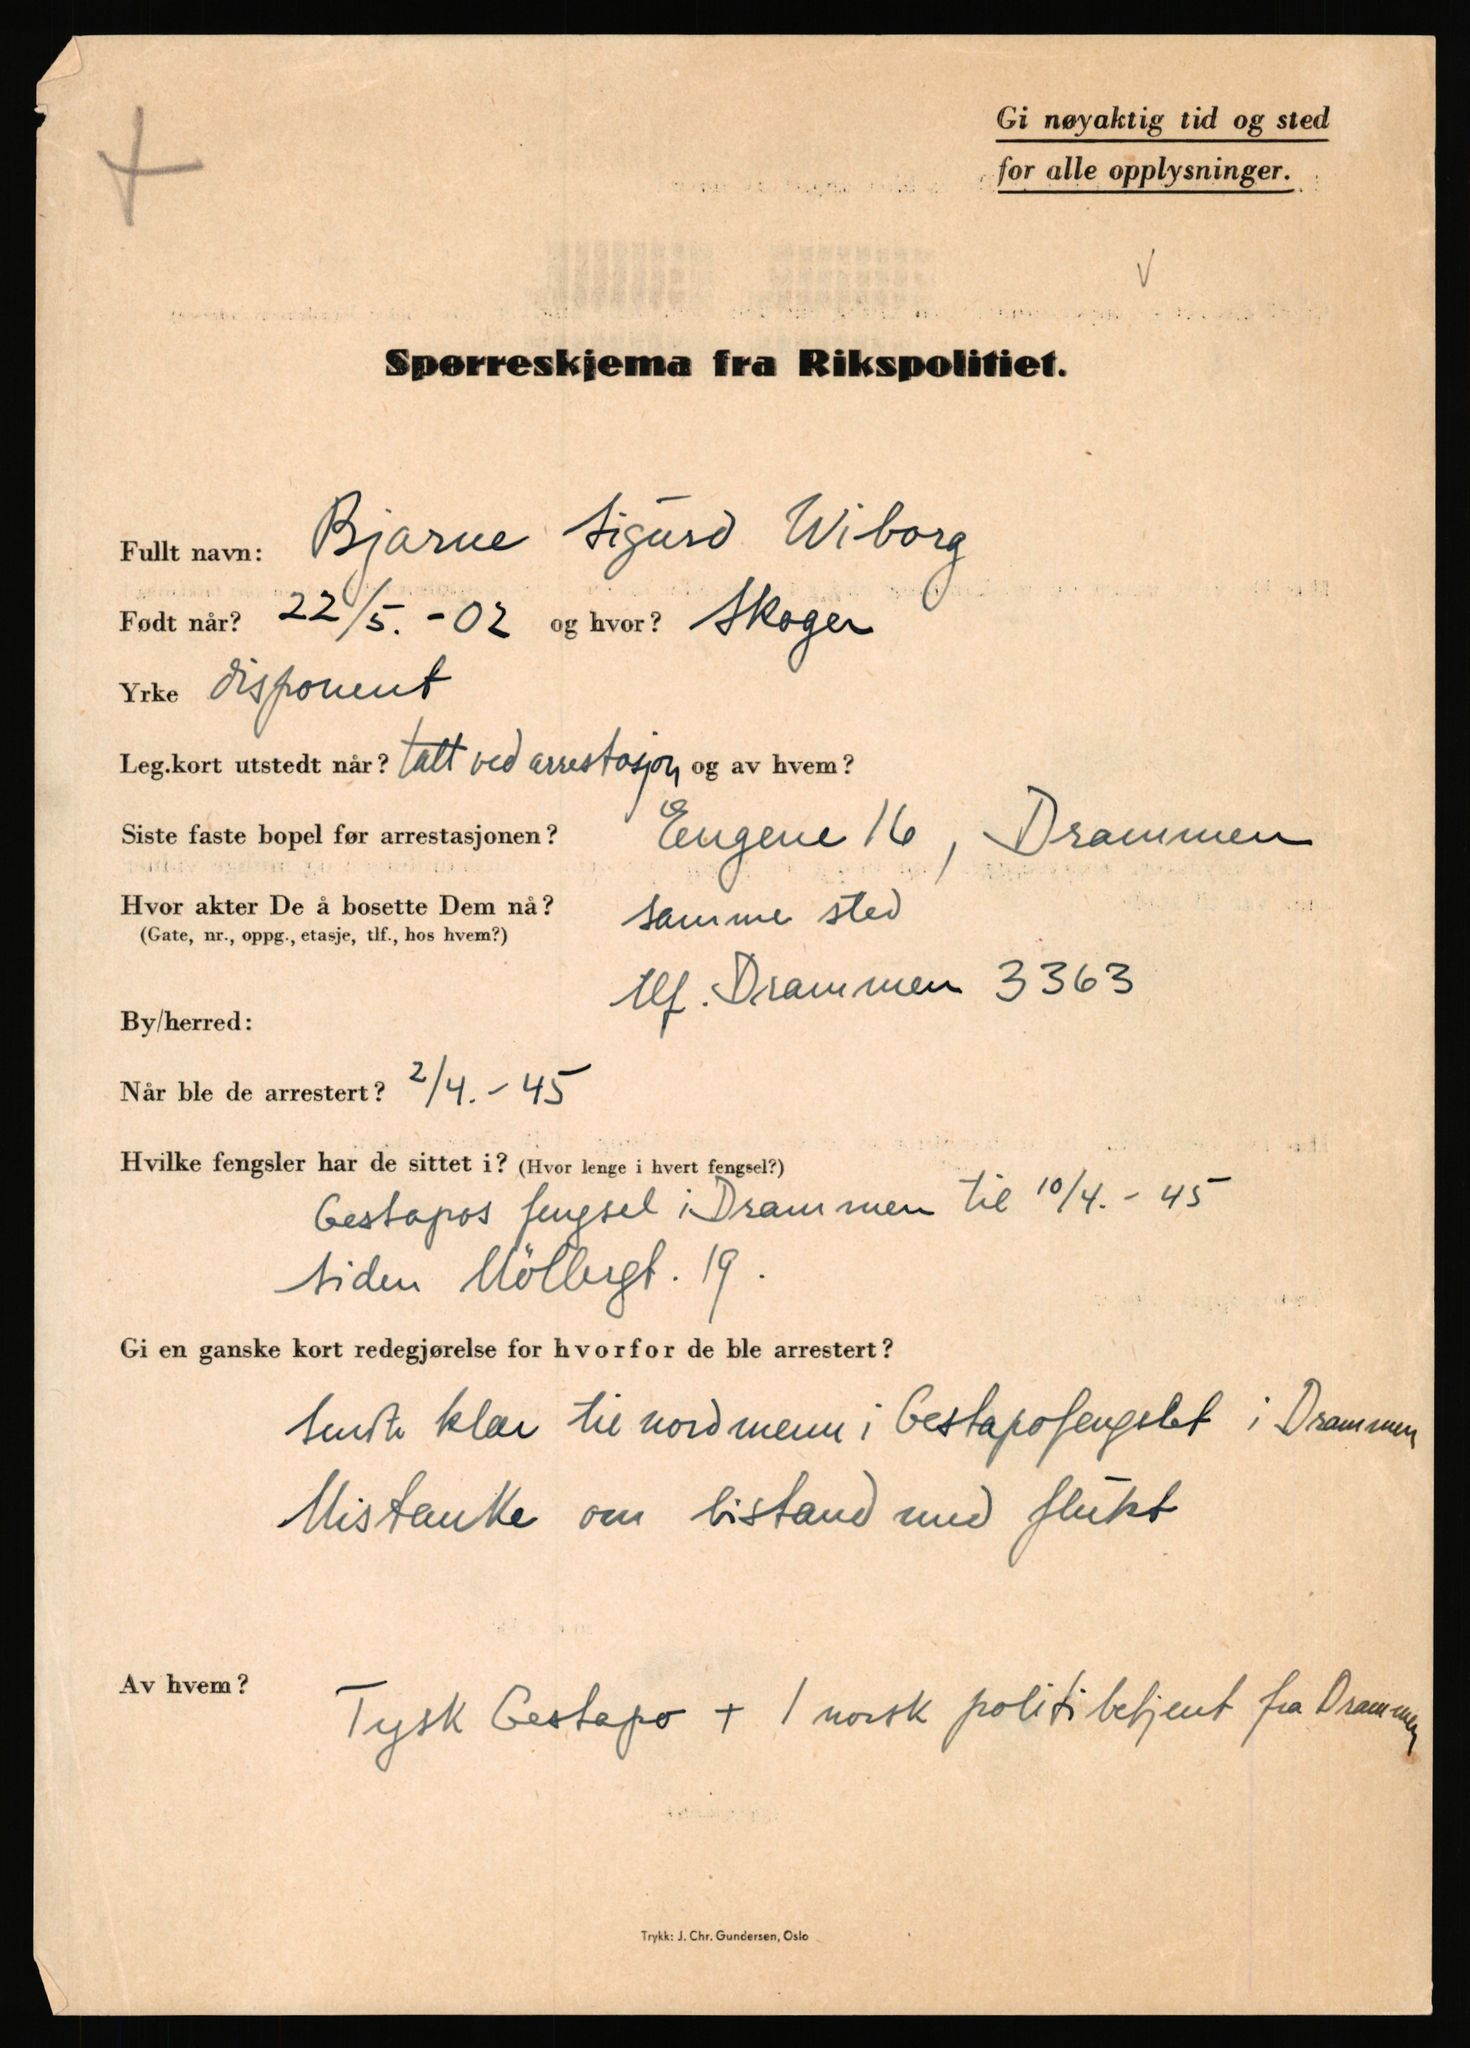 Gi nøyaktig tid og sted
for alle opplysninger.
Spørreskjema fra Rikspolitiet.
Fullt navn: Bjarne Sigurd Wiborg
Født når? 22/5. - 02 og hvor? Skoger
Yrke disponent
Leg.kort utstedt når? tatt ved arrestasjon og av hvem?
Siste faste bopel før arrestasjonen? Engene 16, Drammen
Hvor akter De å bosette Dem nå? samme sted
(Gate, nr., oppg., etasje, tlf., hos hvem?)
tlf. Drammen 3363
By/herred:
Når ble de arrestert? 2/4. - 45
Hvilke fengsler har de sittet i? (Hvor lenge i hvert fengsel?)
Gestapos fengsel i Drammen til 10/4. - 45
siden Möllergt. 19.
Gi en ganske kort redegjørelse for hvorfor de ble arrestert?
Sendte klær til nordmenn i Gestapofengslet i Drammen
Mistanke om bistand med flukt
Av hvem? Tysk Gestapo + 1 norsk politibetjent fra Drammen
Trykk: J. Chr. Gundersen, Oslo